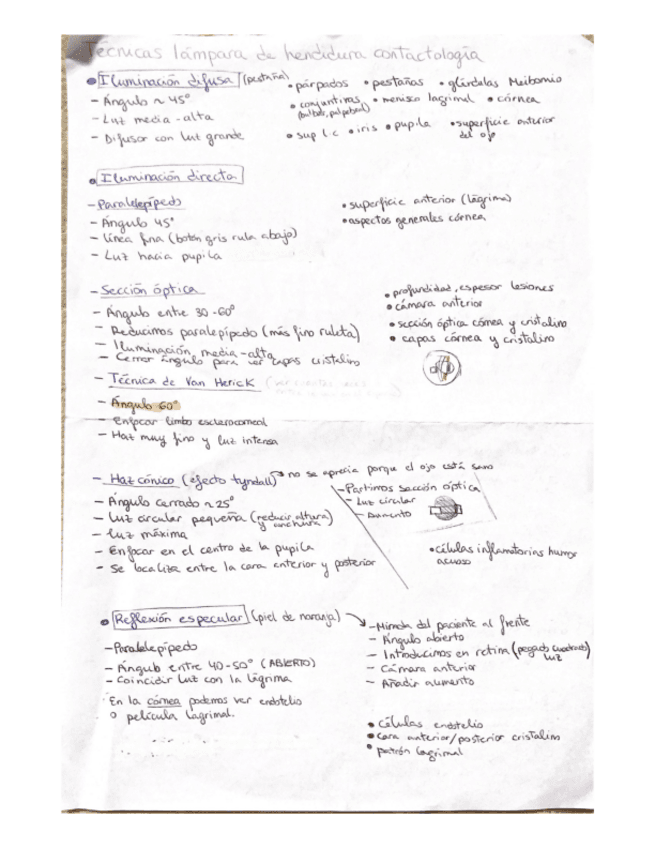 Técnicas lámpara de hendidura contactología
• Iluminación difusa (pestaña)
- Ángulo ~ 45°
- Luz media-alta
- Difusor con luz grande
• párpados • pestañas • glándulas Meibomio
• conjuntivas (bulbar, palpebral) • menisco lagrimal • córnea
• sup lc • iris • pupila • superficie anterior del ojo
• Iluminación directa
- Paralelepípedo
- Ángulo 45°
- Línea fina (botón gris rula abajo)
- Luz hacia pupila
• superficie anterior (lágrima)
• aspectos generales córnea
- Sección óptica
- Ángulo entre 30-60°
- Reducimos paralepípedo (más fino ruleta)
- Iluminación media-alta
- Cerrar ángulo para ver capas cristalino
• profundidad, espesor lesiones
• cámara anterior
• sección óptica córnea y cristalino
• capas córnea y cristalino
- Técnica de Van Herick
- Ángulo 60°
- Enfocar limbo esclerocorneal
- Haz muy fino y luz intensa
- Haz cónico (efecto tyndall) → no se aprecia porque el ojo está sano
- Ángulo cerrado ~ 25°
- Luz circular pequeña (reducir altura y anchura)
- Luz máxima
- Enfocar en el centro de la pupila
- Se localiza entre la cara anterior y posterior
- Partimos sección óptica
- Luz circular
- Aumento
• células inflamatorias humor acuoso
• Reflexión especular (piel de naranja)
- Paralelepípedo
- Ángulo entre 40-50° (ABIERTO)
- Coincidir luz con la lágrima
En la córnea podemos ver endotelio
o película lagrimal.
- Mirada del paciente al frente
- Ángulo abierto
- Introducimos en retina (pegado cuadrado luz)
- Cámara anterior
- Añadir aumento
• células endotelio
• cara anterior/posterior cristalino
• patrón lagrimal